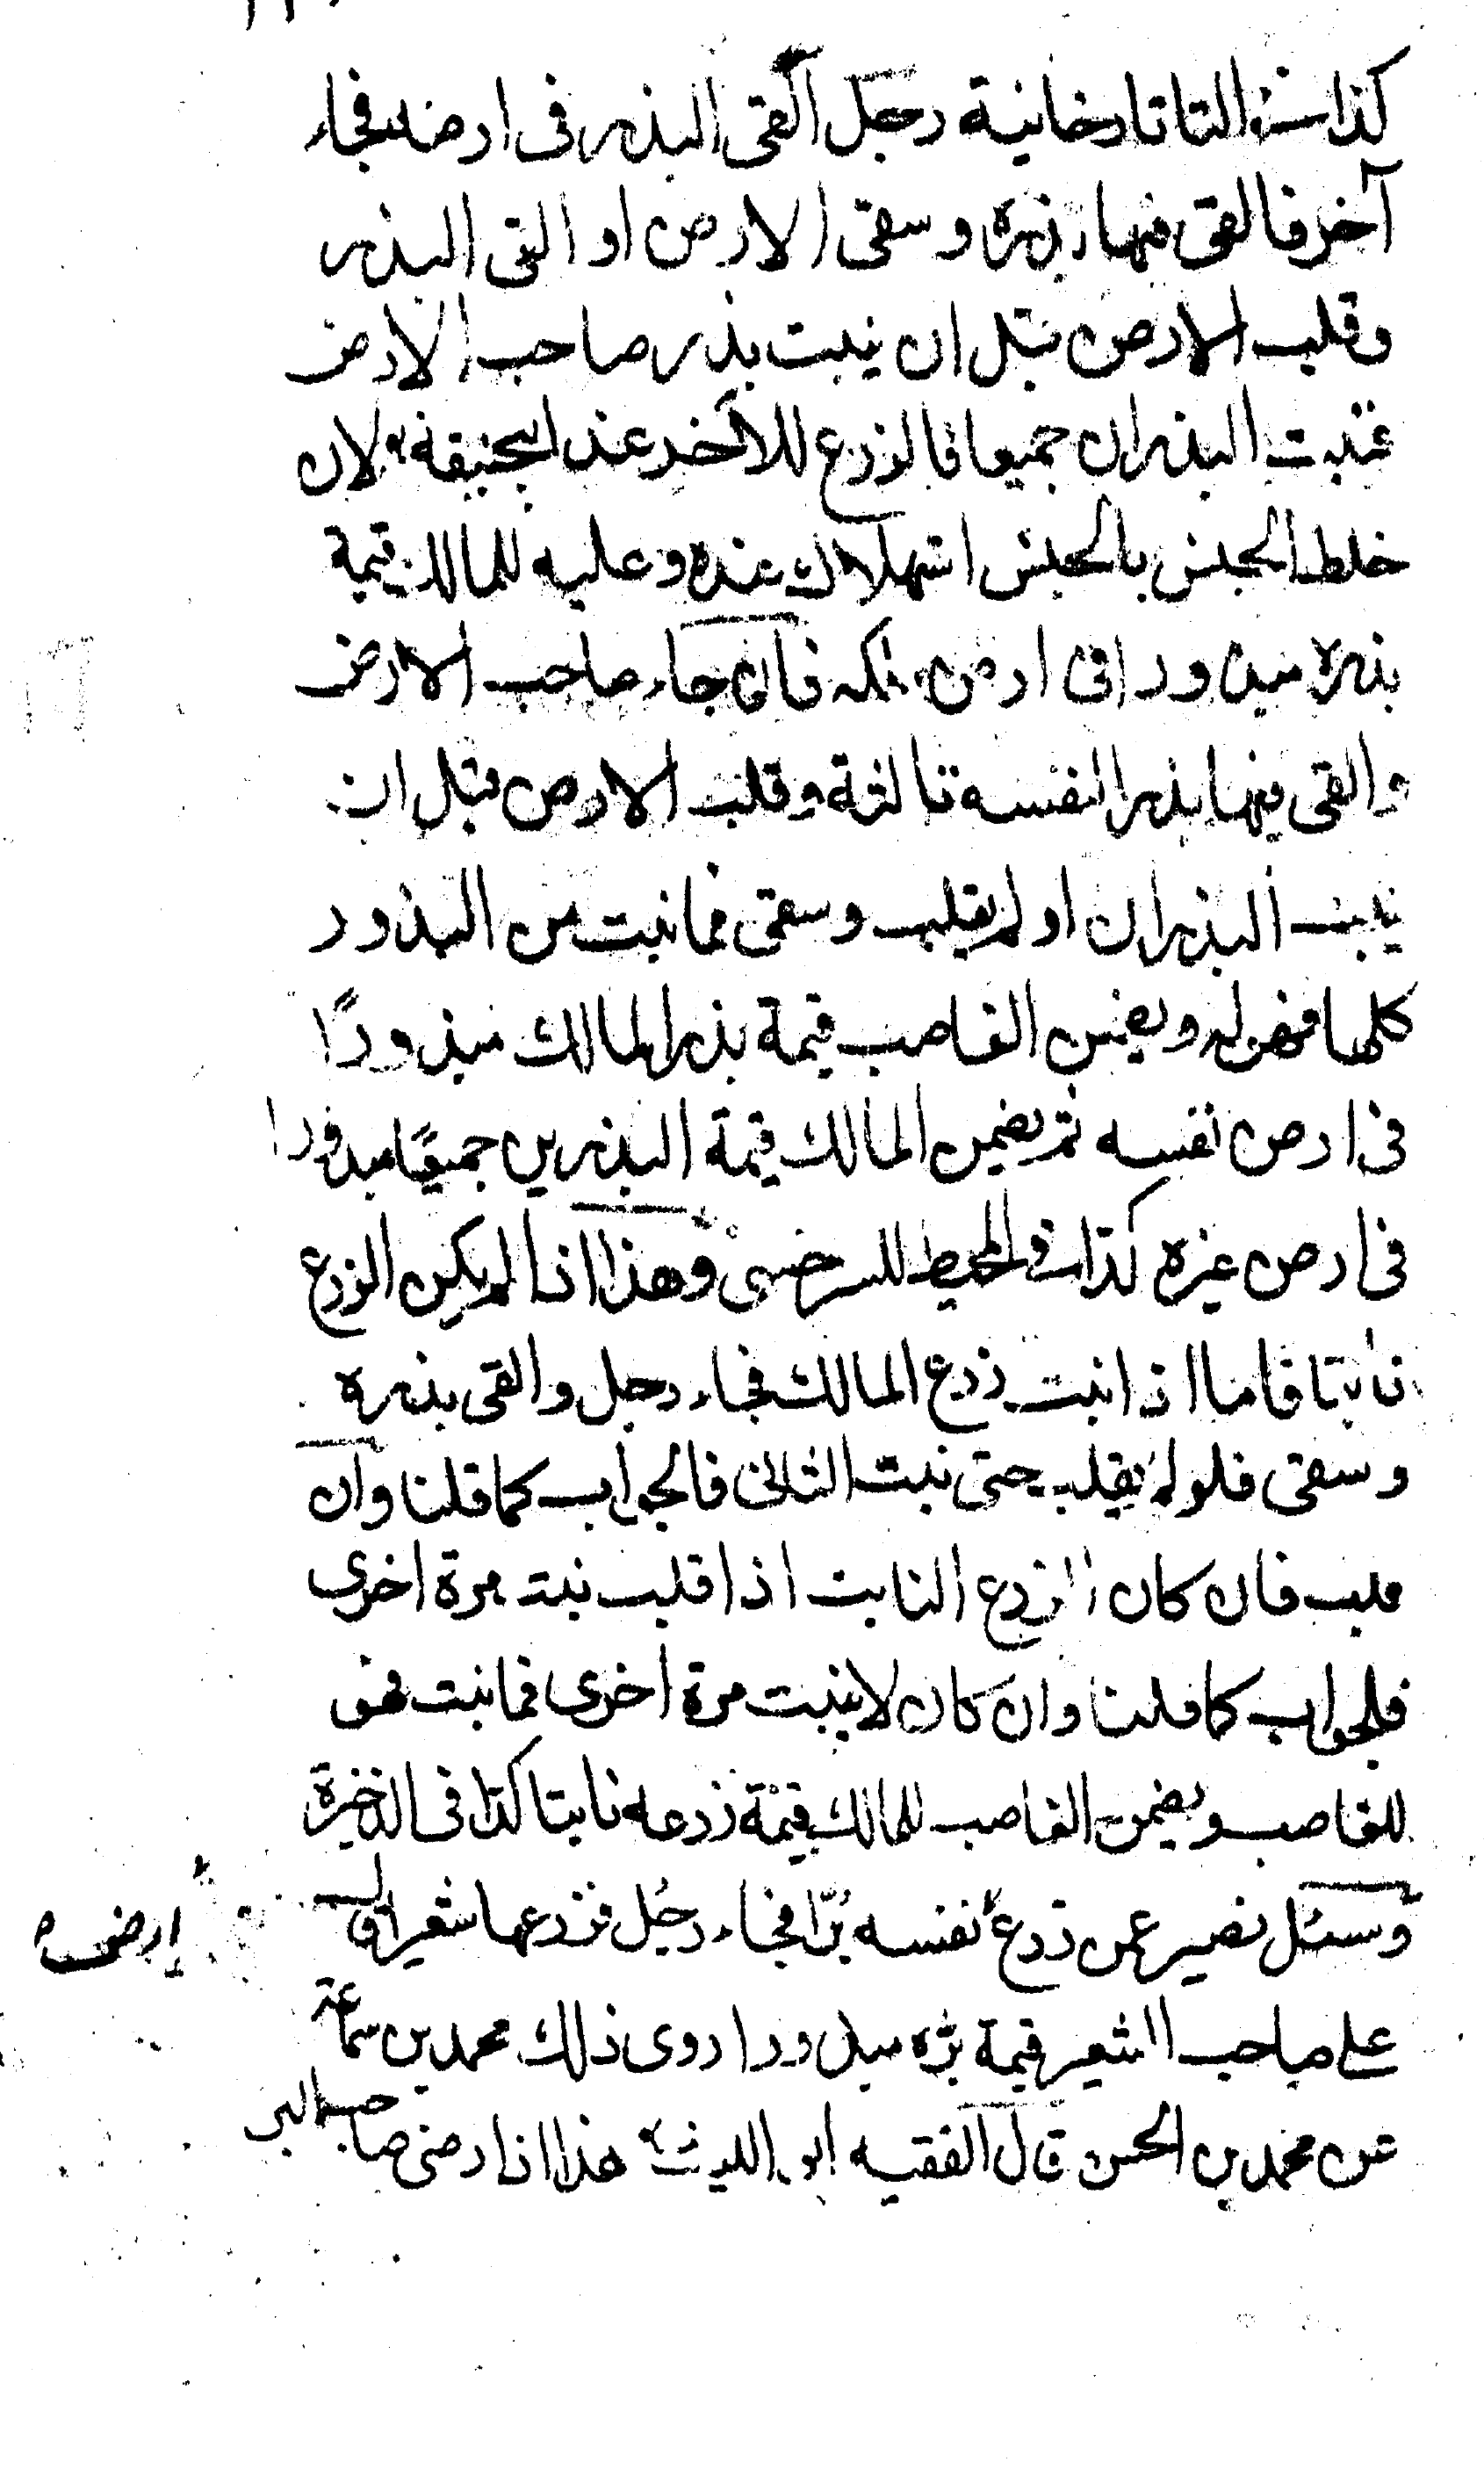 كذا في التاتارخانية رجل القى البذر في ارضه فجاء
آخر فالقى فيها بذره وسقى الارض او القى البذر
وقلب الارض قبل ان ينبت بذر صاحب الارض
فنبت البذران جميعا فالزرع للآخر عند ابيحنيفة لان
خلط الجنس بالجنس استهلاك عنده وعليه للمالك قيمة
بذره مبذورا في ارض فان جاء صاحب الارض
والقى فيها بذر النفسه ثالثة وقلب الارض قبل ان
ينبت البذران او لم يقلب وسقى فما نبت من البذور
كلها فهو له ويضمن الغاصب قيمة بذر المالك مبذورًا
في ارض نفسه ثم يضمن المالك قيمة البذرين جميعًا مبذورا
في ارض غيره كذا في المحيط للسرخسى وهذا اذا لم يكن الزرع
نابتا فاما اذا نبت زرع المالك فجاء رجل والقى بذره
وسقى فلو لم يقلب حتى نبت الثاني فالجواب كما قلنا وان
قلب فان كان الزرع النابت اذا قلب نبت مرة اخرى
فالجواب كما قلنا وان كان لا ينبت مرة اخرى فما نبت فهو
للغاصب ويضمن الغاصب للمالك قيمة زرعه نابتا كذا في الذخيرة
وسئل نصير عمن زرع نفسه بُرّا فجاء رجُل فزرعها شعيرا قال
ارض ه
على صاحب الشعير قيمة بُرّه مبذورا روى ذلك محمد بن سماعة
عن محمد بن الحسن قال الفقيه ابو الليث هذا اذا رضى صاحب البر